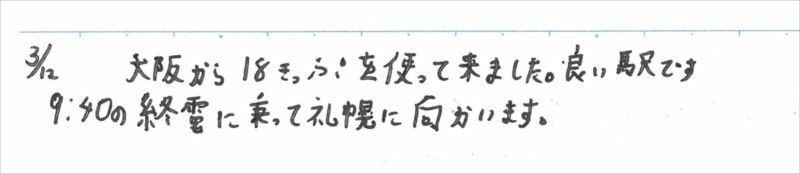 3/12 大阪から18きっぷを使って来ました。良い駅です
9:40の終電に乗って札幌に向かいます。